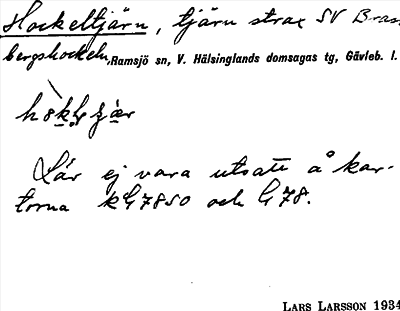 Hockeltjärn, tjärn strax SV Bras-
bergshockeln, Ramsjö sn, V. Hälsinglands domsagas tg, Gävleb. l.
Lär ej vara utsatt å kar-
torna k G 7850 och G 78.
LARS LARSSON 1934